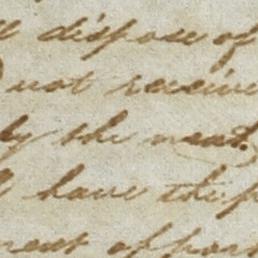 dispose of
not receive
by the next
have the
ment oppor